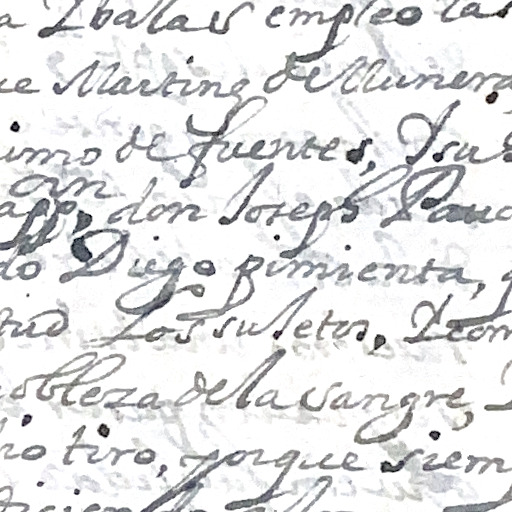 a Ybalas empleo las
ue Martino de Munera
imo de fuentes, Y su
capp.an, don Joseph Pauo
do Diego pimienta, q
tud Los suletos, Y com
nobleza de la sangre, Y
ho tiro, porque siem